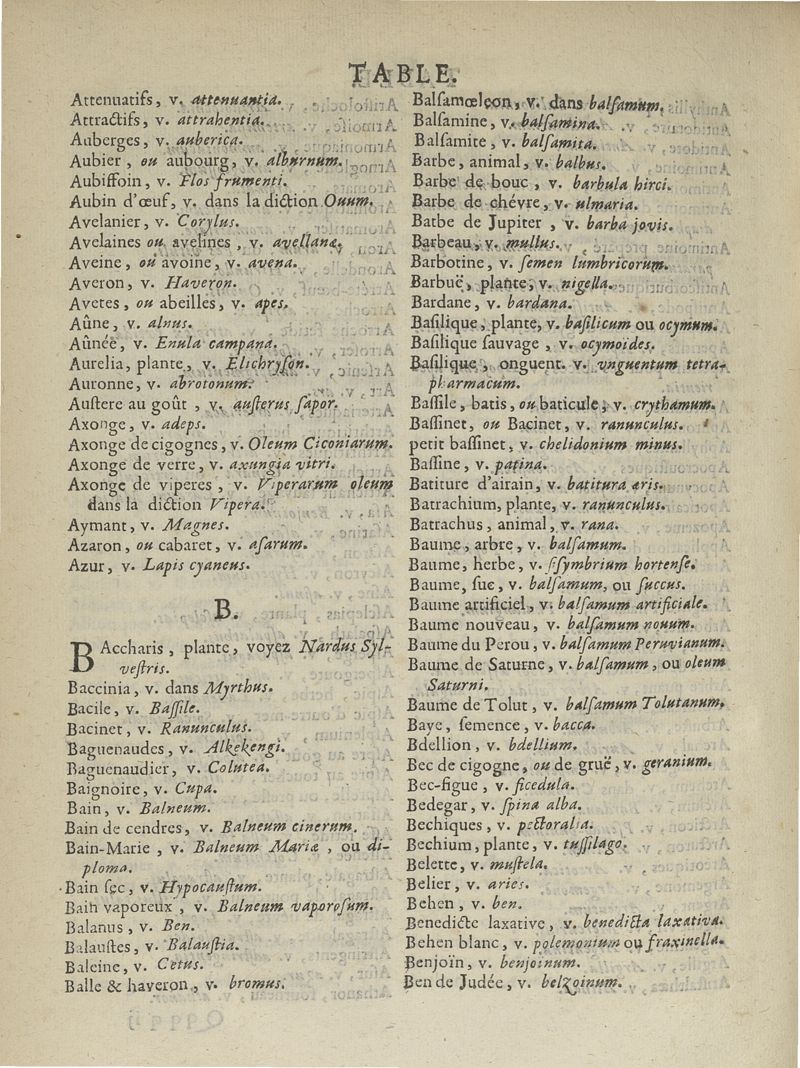 TABLE.
Attenuatifs, v. attenuantia.
Attractifs, v. attrahentia.
Auberges, v. auberica.
Aubier, ou aubourg, v. alburnum.
Aubiffoin, v. Flos frumenti.
Aubin d'œuf, v. dans la diction Ouum.
Avelanier, v. Corylus.
Avelaines ou avelines, v. avellanæ.
Aveine, ou avoine, v. avena.
Averon, v. Haveron.
Avetes, ou abeilles, v. apes.
Aûne, v. alnus.
Aûnée, v. Enula campana.
Aurelia, plante, v. Elichryſon.
Auronne, v. abrotonum.
Auſtere au goût, v. auſterus ſapor.
Axonge, v. adeps.
Axonge de cigognes, v. Oleum Ciconiarum.
Axonge de verre, v. axungia vitri.
Axonge de viperes, v. Viperarum oleum
dans la diction Vipera.
Aymant, v. Magnes.
Azaron, ou cabaret, v. aſarum.
Azur, v. Lapis cyaneus.
B.
BAccharis, plante, voyez Nardus Syl-
veſtris.
Baccinia, v. dans Myrthus.
Bacile, v. Baſſile.
Bacinet, v. Ranunculus.
Baguenaudes, v. Alkekengi.
Baguenaudier, v. Colutea.
Baignoire, v. Cupa.
Bain, v. Balneum.
Bain de cendres, v. Balneum cinerum.
Bain-Marie, v. Balneum Mariæ, ou di-
ploma.
Bain ſec, v. Hypocauſtum.
Bain vaporeux, v. Balneum vaporoſum.
Balanus, v. Ben.
Balauſtes, v. Balauſtia.
Baleine, v. Cetus.
Balle & haveron, v. bromus.
Balſamœleçon, v. dans balſamum.
Balſamine, v. balſamina.
Balſamite, v. balſamita.
Barbe, animal, v. balbus.
Barbe de bouc, v. barbula hirci.
Barbe de chévre, v. ulmaria.
Batbe de Jupiter, v. barba jovis.
Barbeau, v. mullus.
Barbotine, v. ſemen lumbricorum.
Barbuë, plante, v. nigella.
Bardane, v. bardana.
Baſilique, plante, v. baſilicum ou ocymum.
Baſilique ſauvage, v. ocymoides.
Baſilique, onguent. v. vnguentum tetra-
pharmacum.
Baſſile, batis, ou baticule, v. crythamum.
Baſſinet, ou Bacinet, v. ranunculus.
petit baſſinet, v. chelidonium minus.
Baſſine, v. patina.
Batiture d'airain, v. batitura æris.
Batrachium, plante, v. ranunculus.
Batrachus, animal, v. rana.
Baume, arbre, v. balſamum.
Baume, herbe, v. ſiſymbrium hortenſe.
Baume, ſuc, v. balſamum, ou ſuccus.
Baume artificiel, v. balſamum artificiale.
Baume nouveau, v. balſamum nouum.
Baume du Perou, v. balſamum Peruvianum.
Baume de Saturne, v. balſamum, ou oleum
Saturni.
Baume de Tolut, v. balſamum Tolutanum.
Baye, ſemence, v. bacca.
Bdellion, v. bdellium.
Bec de cigogne, ou de gruë, v. geranium.
Bec-figue, v. ficedula.
Bedegar, v. ſpina alba.
Bechiques, v. pectoralia.
Bechium, plante, v. tuſſilago.
Belette, v. muſtela.
Belier, v. aries.
Behen, v. ben.
Benedicte laxative, v. benedicta laxativa.
Behen blanc, v. polemonium ou fraxinella.
Benjoïn, v. benjoinum.
Ben de Judée, v. belzoinum.